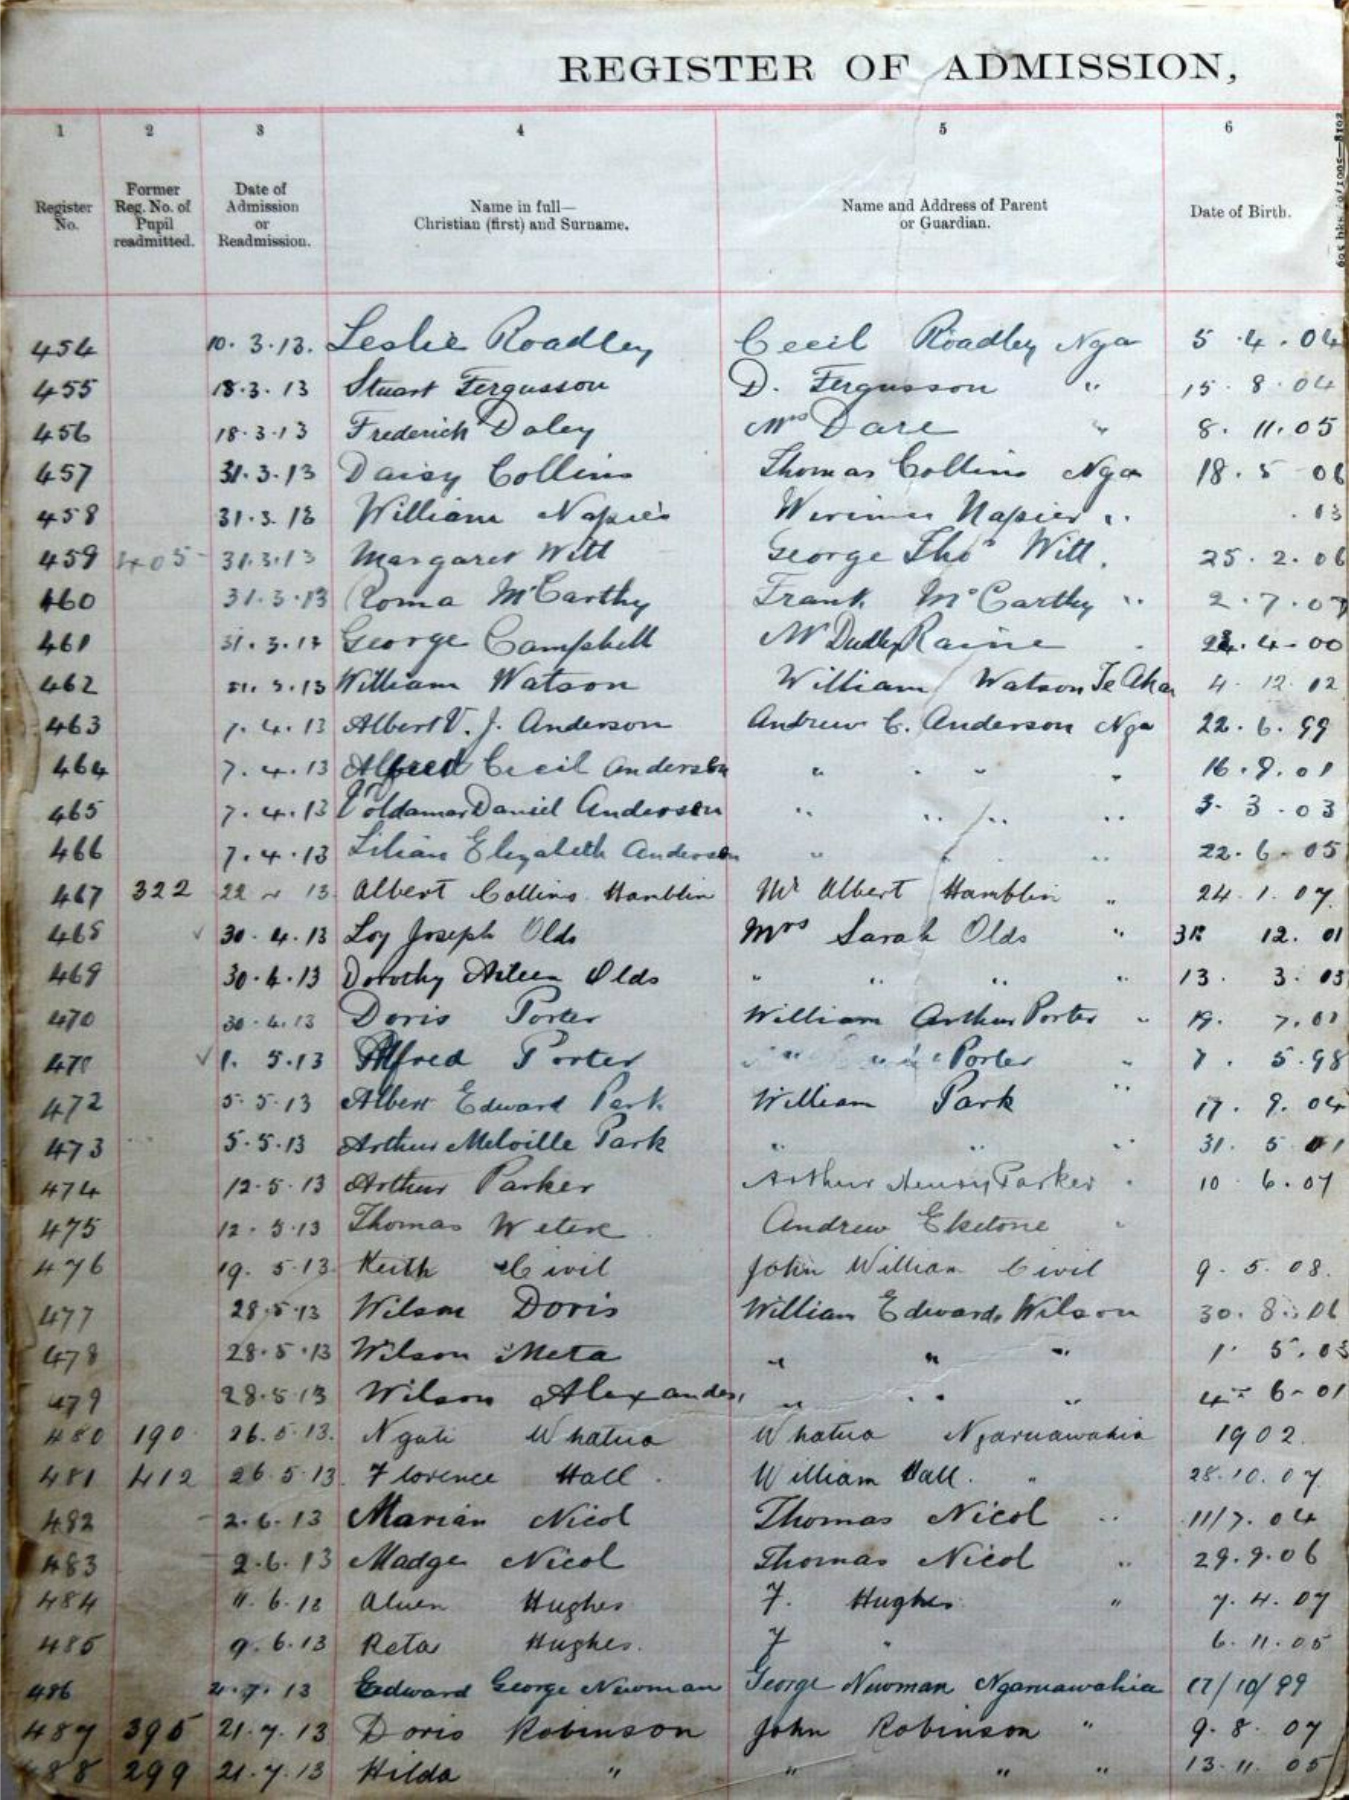 REGISTER OF ADMISSION,
1 2 3 4 5 6
Register No. Former Reg. No. of Pupil readmitted. Date of Admission or Readmission. Name in full— Christian (first) and Surname. Name and Address of Parent or Guardian. Date of Birth.
454 10. 3. 13. Leslie Roadley Cecil Roadley Nga 5 . 4 . 04
455 18. 3. 13 Stuart Fergusson D. Fergusson " 15 . 8 . 04
456 18. 3. 13 Frederick Daley Mrs Dare " 8. 11. 05
457 31. 3. 13 Daisy Collins Thomas Collins Nga 18. 5 06
458 31. 3. 13 William Napier Napier "
459 405 31. 3. 13 Margaret Witt George Thos Witt. 25. 2. 06
460 31. 3. 13 Roma McCarthy Frank McCarthy " 2. 7. 07
461 31. 3. 13 George Campbell Mr Dudley Raine 4. 00
462 31. 3. 13 William Watson William Watson Te Akau 4. 12. 02
463 7. 4. 13 Albert V. J. Anderson Andrew C. Anderson Nga 22. 6. 99
464 7. 4. 13 Alfred Cecil Anderson " " " " 16. 9. 01
465 7. 4. 13 Voldamar Daniel Anderson " " " " 3. 3. 03
466 7. 4. 13 Lilian Elizabeth Anderson " " " 22. 6. 05
467 322 22 13 Albert Collins Hamblin Mr Albert Hamblin " 24. 1. 07.
468 30. 4. 13 Loy Joseph Olds Mrs Sarah Olds " 12. 01
469 30. 4. 13 Dorothy Aileen Olds " " " " 13. 3. 03
470 30. 4. 13 Doris Porter William Arthur Porter " 19. 7. 01
471 1. 5. 13 Alfred Porter " " " Porter " 7. 5. 98
472 5. 5. 13 Albert Edward Park William Park " 17. 9. 04
473 5. 5. 13 Arthur Melville Park " " " 31. 5 01
474 12. 5. 13 Arthur Parker Arthur Henry Parker " 10 6. 07
475 12. 5. 13 Thomas Wetere Andrew Eketone "
476 19. 5. 13 Keith Civil John William Civil 9. 5. 08.
477 28. 5. 13 Wilson Doris William Edwards Wilson 30. 8. 06
478 28. 5. 13 Wilson Meta " " " 1. 5. 03
479 28. 5. 13 Wilson Alexander " " " 4- 6- 01
480 190 26. 5. 13. Ngati Whatua Whatua Ngaruawahia 1902.
481 412 26. 5. 13. Florence Hall. William Hall. " 28. 10. 07
482 2. 6. 13 Marian Nicol Thomas Nicol " 11/7. 04
483 2. 6. 13 Madge Nicol Thomas Nicol " 29. 9. 06
484 11. 6. 13 Aluen Hughes F. Hughes " 7. 4. 07
485 9. 6. 13 Reta Hughes. F " 6. 11. 05
486 13 Edward George Newman George Newman Ngaruawahia 17/10/99
487 395 21. 7. 13 Doris Robinson John Robinson " 9. 8. 07
488 299 21. 7. 13 Hilda " " " " 13. 11. 05